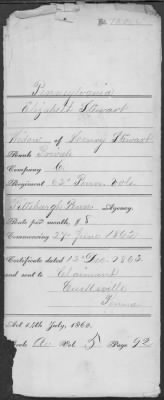 Pennsylvania
Elizabeth Stewart
Widow of Stewart
Rank Private
Company C
Regiment 62" Penn. Vols.
Pittsburgh Penn Agency.
Rate per month, $8
Commencing 27 June 1862
Certificate dated 13 Dec. 1862
and sent to Claimant
Penna
Act 14th July, 1862.
Book A Vol. 5 Page 92